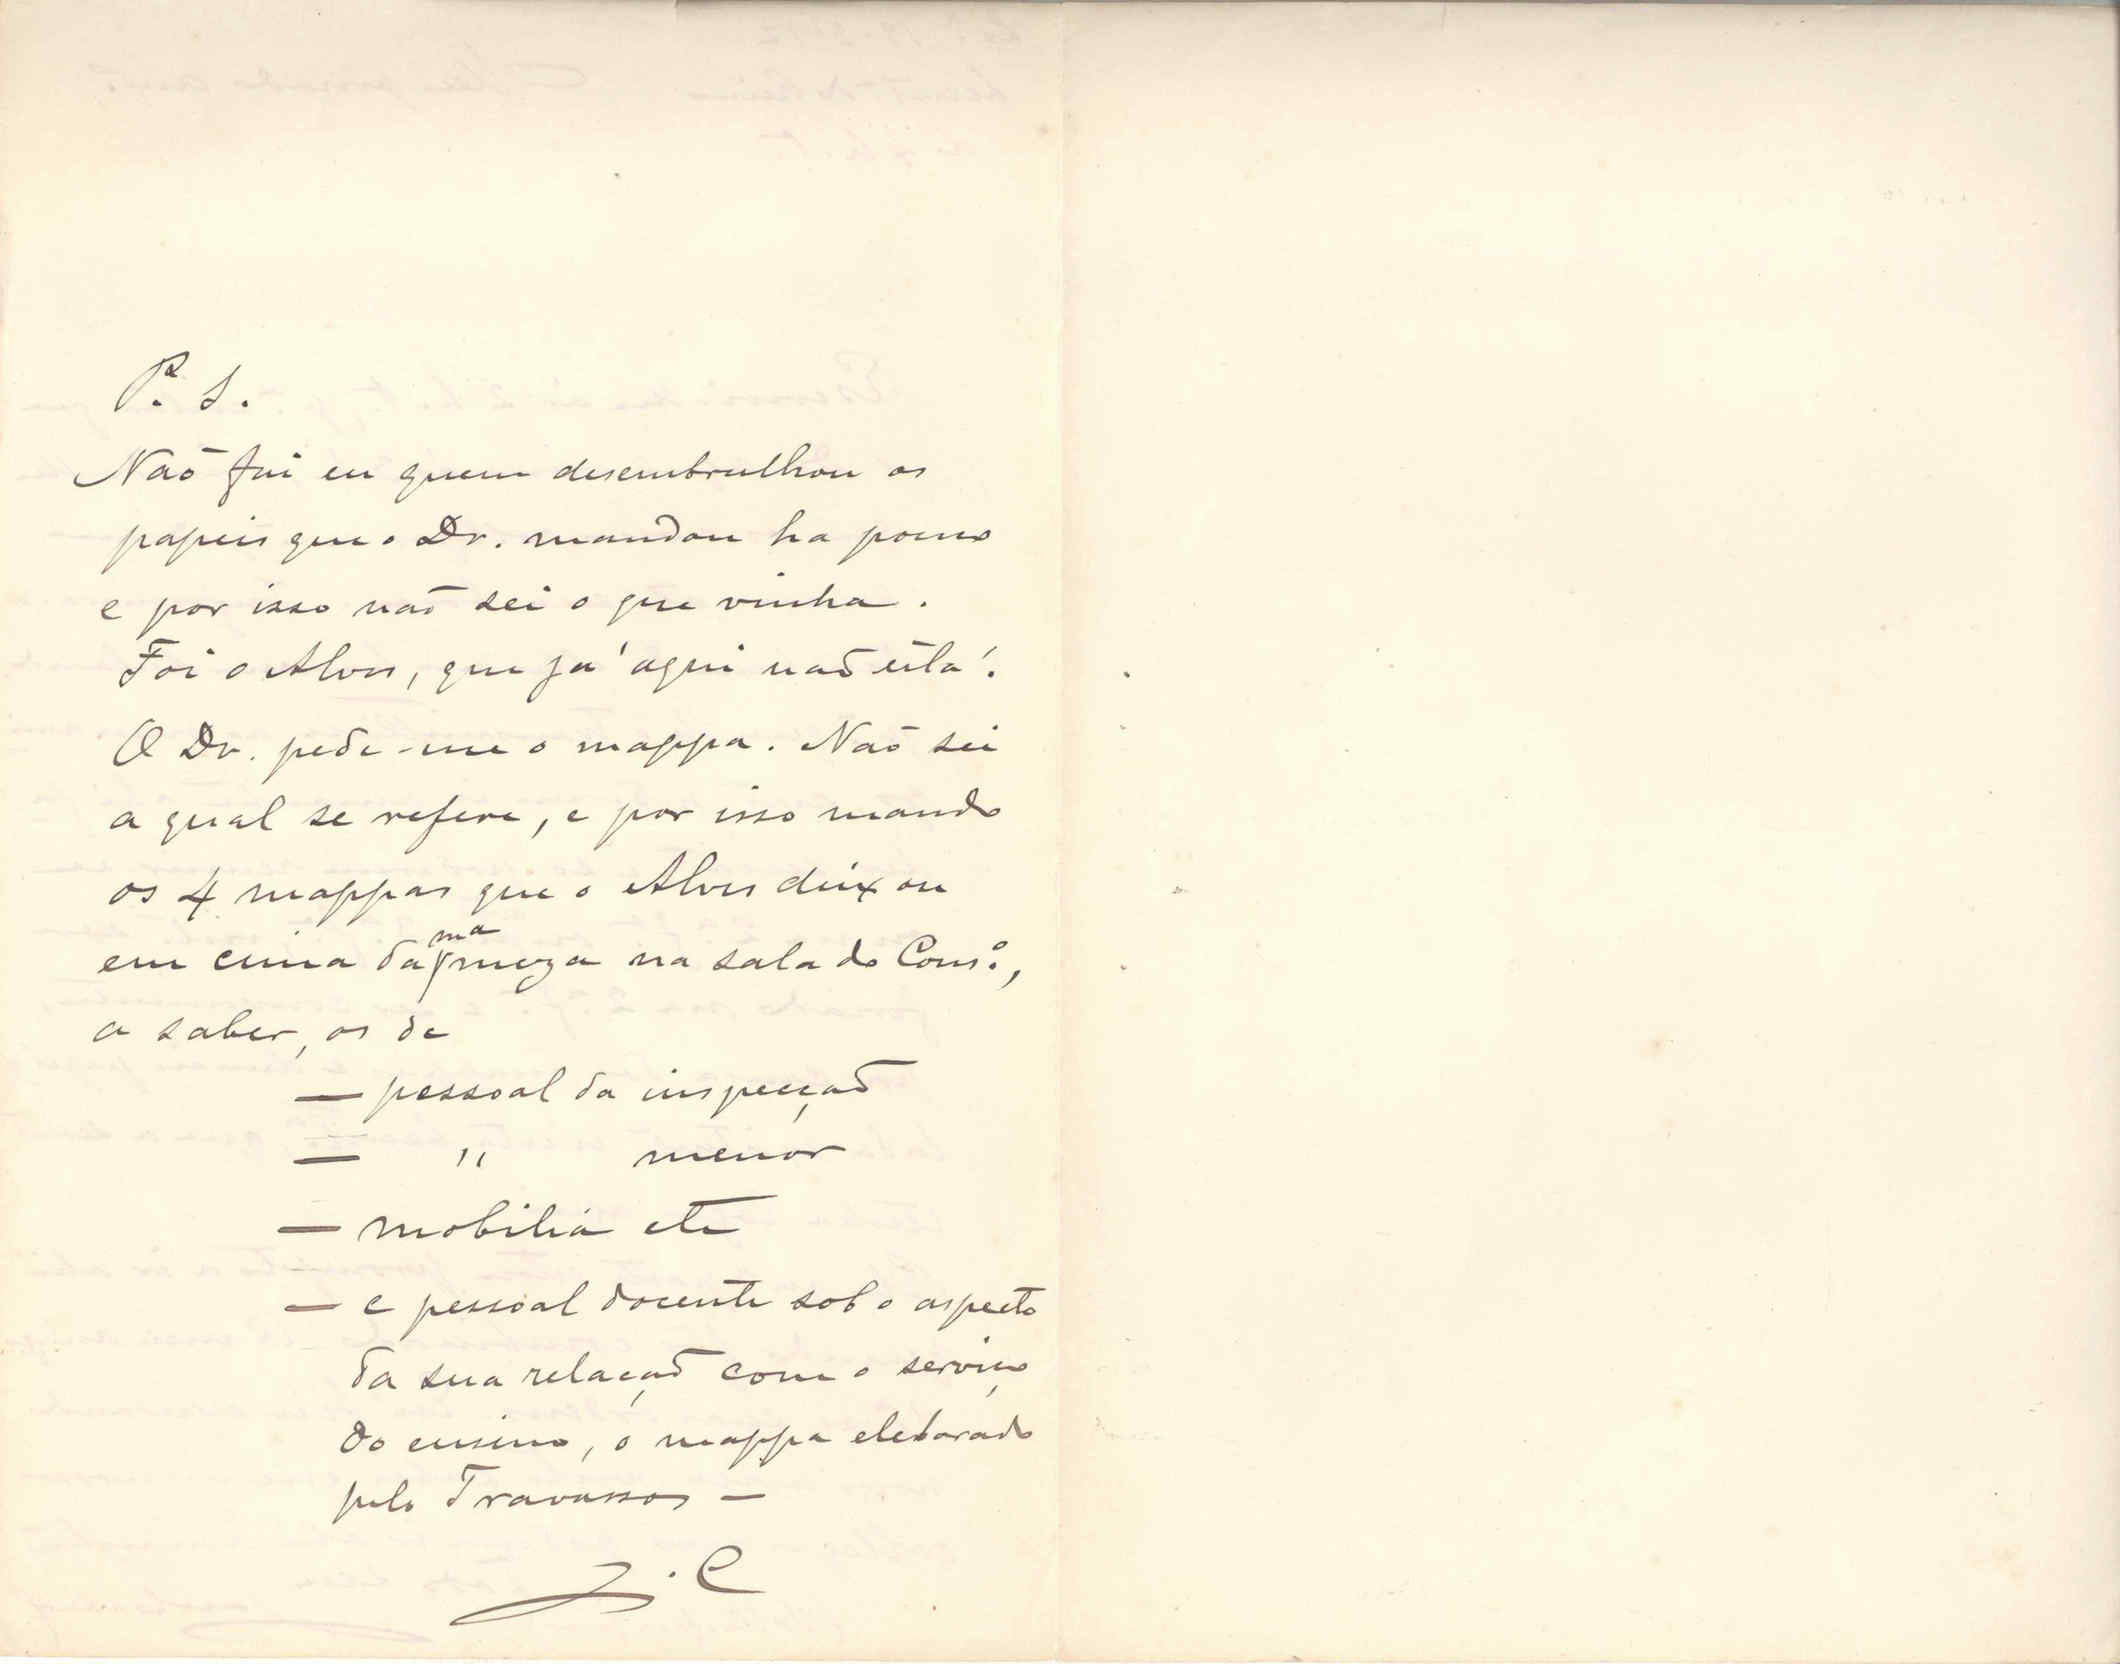 P. S.
Não fui eu quem desembrulhou os
papeis que o Dr. mandou ha pouco
e por isso não sei o que vinha.
Foi o Alves, que já aqui não está.
O Dr. pede-me o mappa. Não sei
a qual se refere, e por isso mando
os 4 mappas que o Alves deixou
em cima da ma meza na sala do Cons.º,
a saber, os de
— pessoal da inspecção
— " menor
— mobilia etc
— e pessoal docente sob o aspecto
da sua relação com o serviço
do ensino, o mappa eleborado
pelo Travassos —
J. C